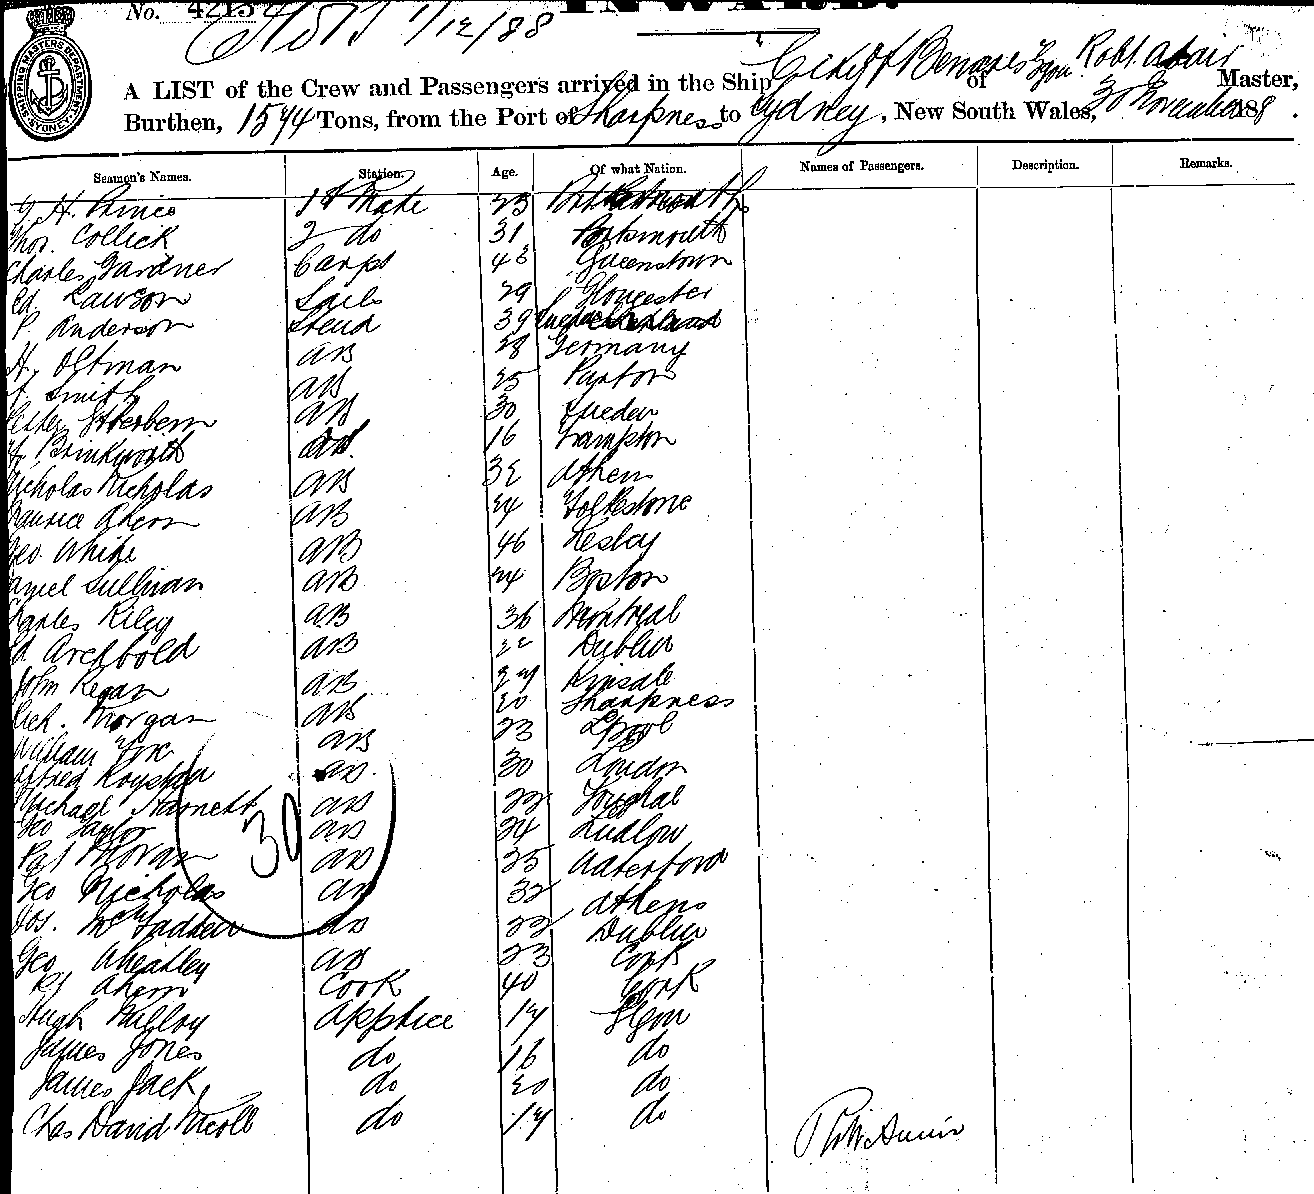 No. 42152
INWARD.
1/12/88
SHIPPING MASTERS DEPARTMENT SYDNEY
A LIST of the Crew and Passengers arrived in the Ship City of Benares of Robt Adair Master,
Burthen, 1574 Tons, from the Port of Sharpness to Sydney, New South Wales, 30 November 1888.
Seamen's Names. Station. Age. Of what Nation. Names of Passengers. Description. Remarks.
H. 1st Mate 23
Thos. Collick 2 do 31 Portsmouth
Charles Gardner Carpt 43 Queenstown
Ed Lawson Sails 29 Gloucester
P. Anderson Steud 39
H, Oltman AB 28 Germany
Smith AB 25
AB 30 Sweden
H, Brinkworth 16
Nicholas Nicholas AB 32 Athens
Maurice Ahern AB 24 Folkestone
Geo White AB 46 Lesley
Daniel Sullivan AB 24 Boston
Charles Riley AB 36 Montreal
Ed Archbold AB 22 Dublin
John Regan AB 27 Kinsale
Rich. Morgan AB 20 Sharpness
William York AB 23 Lpool
Alfred Royston AB 30 London
Michael Harnett AB 22 Youghal
Geo Taylor AB 24 Ludlow
30
Pat Moran AB 35 Waterford
Geo Nicholas AB 32 Athens
Jos. McFadden AB 22 Dublin
Geo Wheatley AB 23 Cork
Ahern Cook 40 Cork
Hugh Apptice 17 Glasgow
James Jones do 16 do
James Jack do 20 do
Chas David Nicoll do 17 do